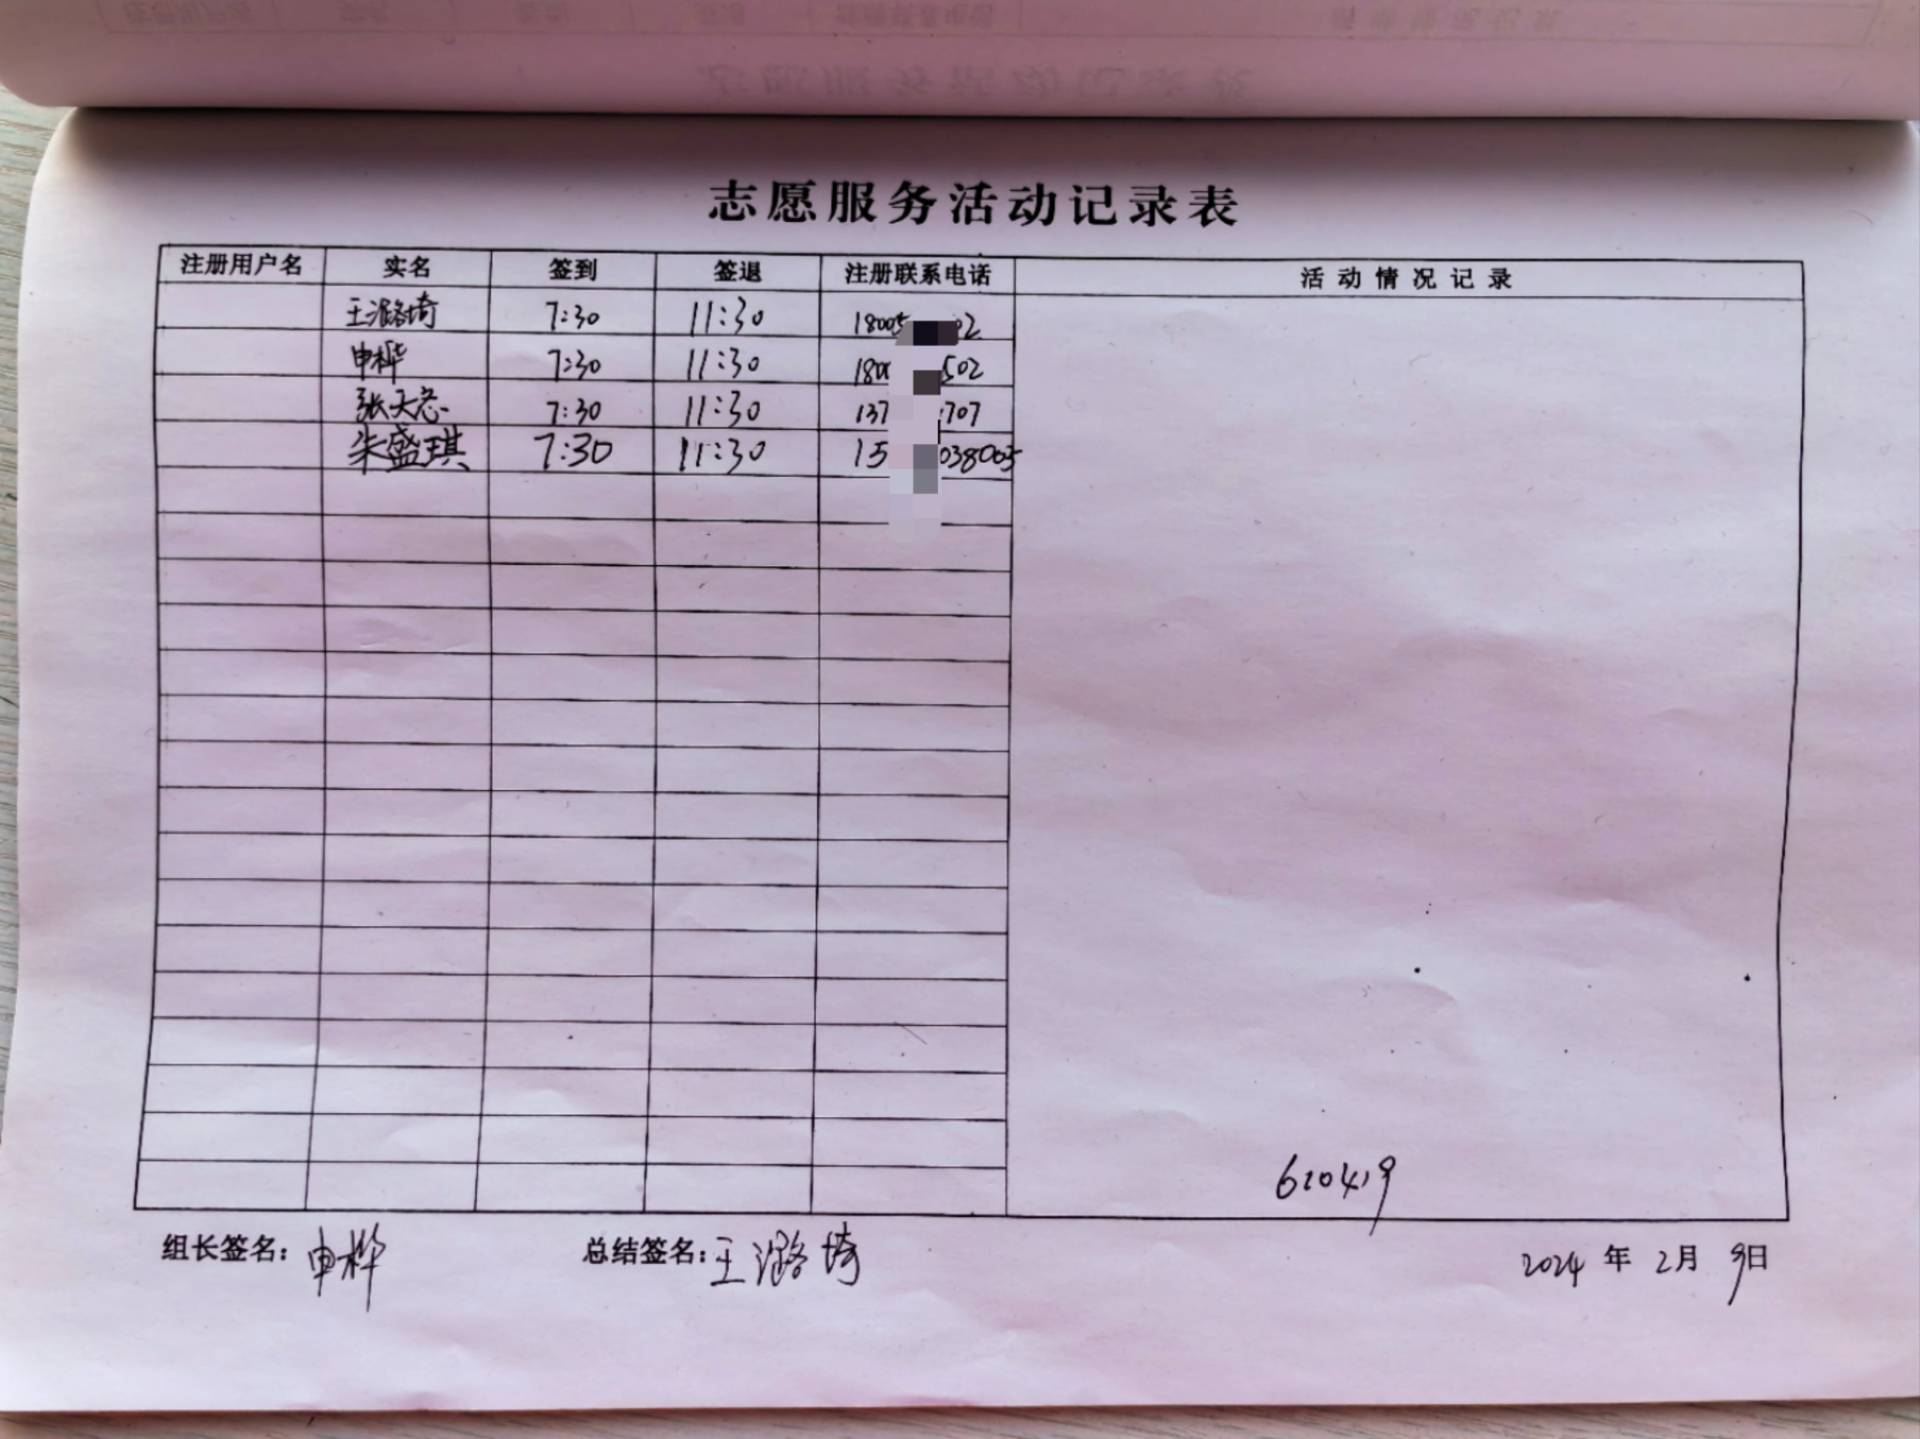 志愿服务活动记录表
注册用户名 实名 签到 签退 注册联系电话 活动情况记录
王潞琦 7:30 11:30 18005 02
申桦 7:30 11:30 180 502
张天 7:30 11:30 137 707
朱盛琪 7:30 11:30 15 038005
610419
组长签名：申桦 总结签名：王潞琦 2024年2月9日